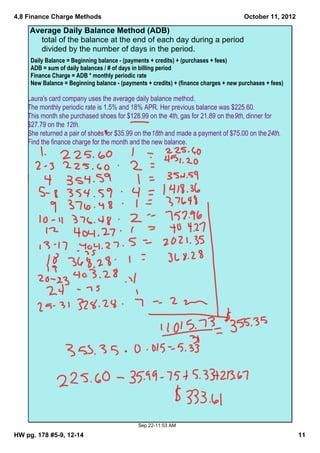 4.8 Finance Charge Methods
October 11, 2012
Average Daily Balance Method (ADB)
total of the balance at the end of each day during a period
divided by the number of days in the period.
Daily Balance = Beginning balance - (payments + credits) + (purchases + fees)
ADB = sum of daily balances / # of days in billing period
Finance Charge = ADB * monthly periodic rate
New Balance = Beginning balance - (payments + credits) + (finance charges + new purchases + fees)
Laura's card company uses the average daily balance method.
The monthly periodic rate is 1.5% and 18% APR. Her previous balance was $225.60.
This month she purchased shoes for $128.99 on the 4th, gas for 21.89 on the 9th, dinner for
$27.79 on the 12th.
She returned a pair of shoes for $35.99 on the 18th and made a payment of $75.00 on the 24th.
Find the finance charge for the month and the new balance.
1. 225.60 1 = 225.60
2-3 225.60 · 2 = 451.20
4 354.59 1 = 354.59
5-8 354.59 · 4 = 1418.36
9 376.48 · 1 = 376.48
10-11 376.48 · 2 = 752.96
12 404.27 · 1 = 404.27
13-17 404.27 · 5 = 2021.35
18 368.28 · 1 = 368.28
19
20-23 403.28
24 -75 1
25-31 328.28 · 7
11015.73 = $355.35
31
355.35 · 0.015 = 5.33
225.60 - 35.99 - 75 + 5.33 + 213.67
$333.61
Sep 22-11:53 AM
HW pg. 178 #5-9, 12-14
11